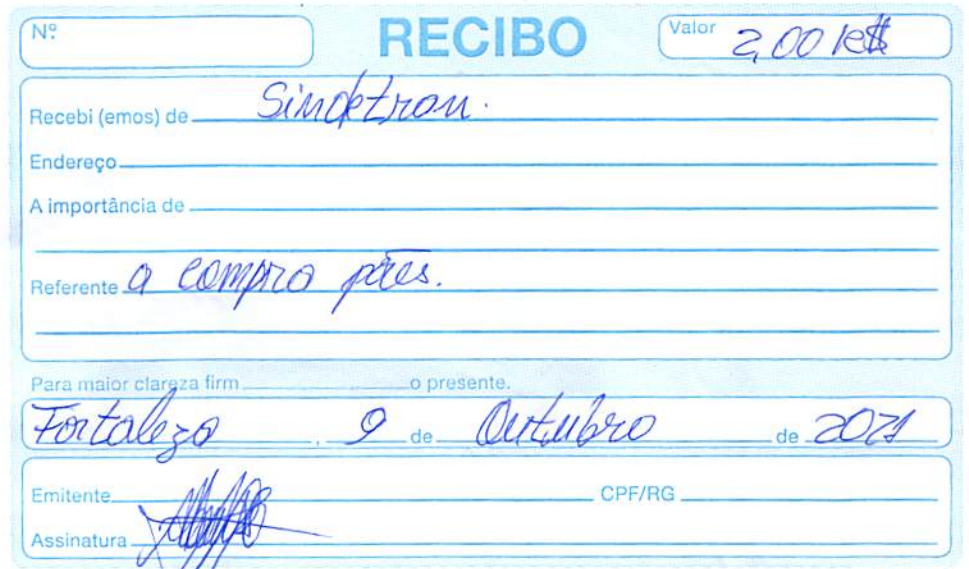 Nº RECIBO Valor 2,00 R$
Recebi (emos) de Sindetran.
Endereço
A importância de
Referente a compra pães.
Para maior clareza firm o presente.
Fortaleza , 9 de Outubro de 2021
Emitente CPF/RG
Assinatura